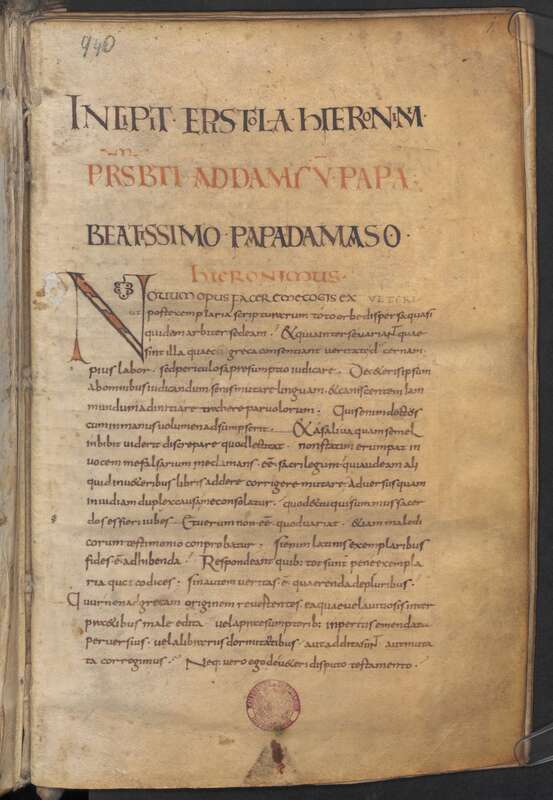 940
INCIPIT · EPISTOLA · HIERONIMI
PRSBTI · AD DAMSV · PAPA ·
BEATISSIMO · PAPA DAMASO ·
HIERONIMUS ·
NOVUM OPUS FACERE ME COGIS EX VETERI
ut post exemplaria scripturarum toto orbe dispersa quasi
quidam arbiter sedeam · & quia inter se variant quae
sint illa quae cū greca consentiant veritate decernam ·
pius labor · sed periculosa presumptio iudicare · De ceteris ipsum
ab omnibus iudicandum senis mutare linguam · & caniscentem iam
mundum ad initia trahere parvulorum · Quis enim doctus
cum in manus volumen adsumpserit · & a saliva quam semel
inbibit viderit discrepare quod lectitat · non statim erumpat in
vocem me falsarium me clamans · eē sacrilegum qui audeam ali
quid in veteribus libris addere corrigere mutare · Adversus quam
invidiam duplex causa me consolatur · quod & tu qui summus sacer
dos es fieri iubes · Et verum non eē quod variat · &iam maledi
corum testimonio conprobatur · Si enim latinis exemplaribus
fides ē adhibenda · Respondeant quib: tot sunt pene exempla
ria quot codices · Sin autem veritas ē quaerenda de pluribus ·
Cur non ad grecam originem revertentes ea quae vel a vitiosis inter
praetibus male edita · vel a presumptorib: inperitis emendata
perversius · vel a librariis dormitantibus · aut addita sunt aut muta
ta corregimus · Neq; vero ego de veteri disputo testamento ·